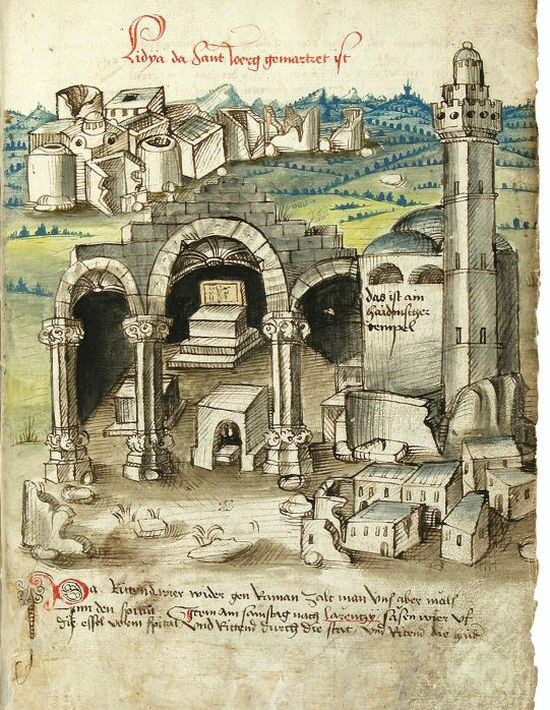 Lidya da sant Joerg gemartret ist
das ist am
haidnischer
tempel
Da Rittend wier wider gen Raman Zalt man vns aber mäls
Inn den spital Item am samstag nach Larentze sasen wier vf
die essel vorm spital vnd Rittend durch die stat, vnd Ritend die haid